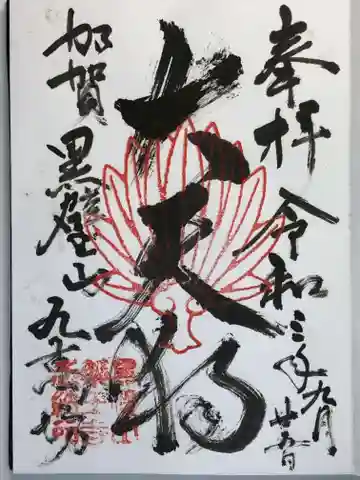 奉拝 令和三年九月
廿五日
大天狗
加賀 黒壁山 九萬坊